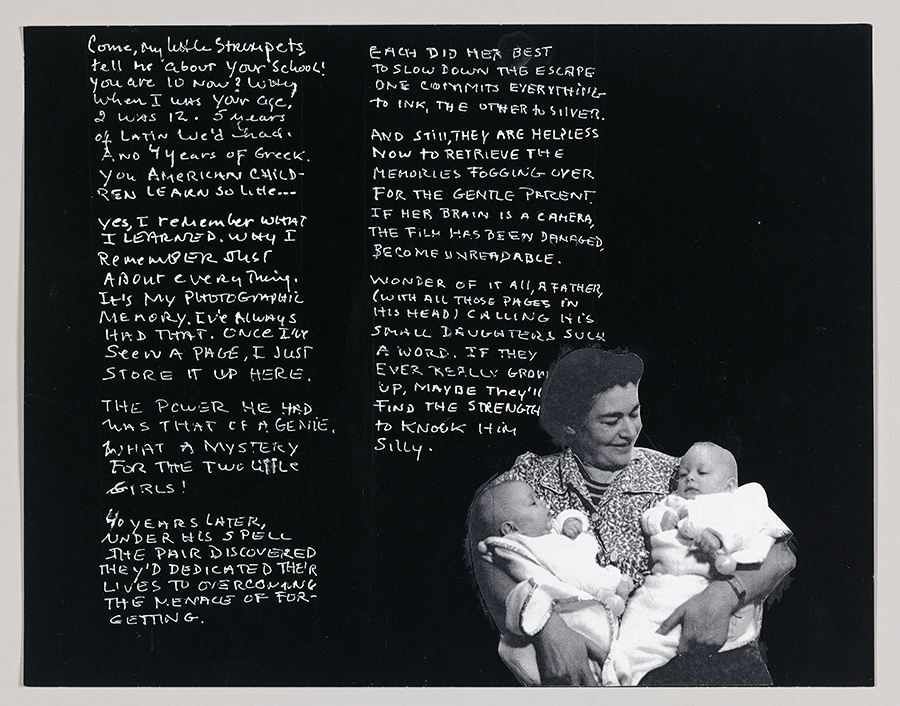 Come, my little Strumpets,
tell me about your School!
You are 10 now? Why
when I was your age,
I was 12. 5 years
of LATIN we'd had.
AND 4 years of Greek.
You AMERICAN CHILD-
REN LEARN SO little...
yes, I remember WHAT
I LEARNED. WHY I
REMEMBER JUST
ABOUT everyThing.
It's MY PHOTOGRAPHIC
MEMORY. I've ALWAYS
HAD THAT. ONCE I'VE
SEEN A PAGE, I JUST
STORE IT UP HERE.
THE POWER HE HAD
WAS THAT OF A GENIE.
WHAT A MYSTERY
FOR THE TWO little
GIRLS!
40 YEARS LATER,
UNDER HIS SPELL
THE PAIR DISCOVERED
THEY'D DEDICATED THEIR
LIVES TO OVERCOMING
THE MENACE OF FOR-
GETTING.
EACH DID HER BEST
TO SLOW DOWN THE ESCAPE
ONE COMMITS EVERYTHING
to INK, THE OTHER to SILVER.
AND STILL, THEY ARE HELPLESS
NOW to RETRIEVE THE
MEMORIES FOGGING OVER
FOR THE GENTLE PARENT.
IF HER BRAIN IS A CAMERA,
THE FILM HAS BEEN DAMAGED,
BECOME UNREADABLE.
WONDER OF IT All, A FATHER,
(WITH ALL THOSE PAGES IN
HIS HEAD) CALLING HIS
SMALL DAUGHTERS SUCH
A WORD. IF THEY
EVER REALLY GROW
UP, MAYBE They'll
FIND THE STRENGTH
to KNOCK HIM
Silly.